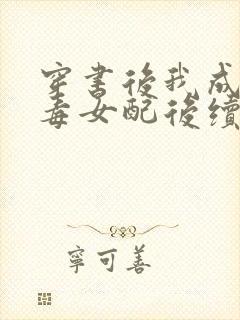 穿書後我成
毒女配後續
寧可善